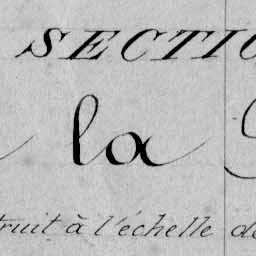 SECTIO
la
truit à l'échelle de